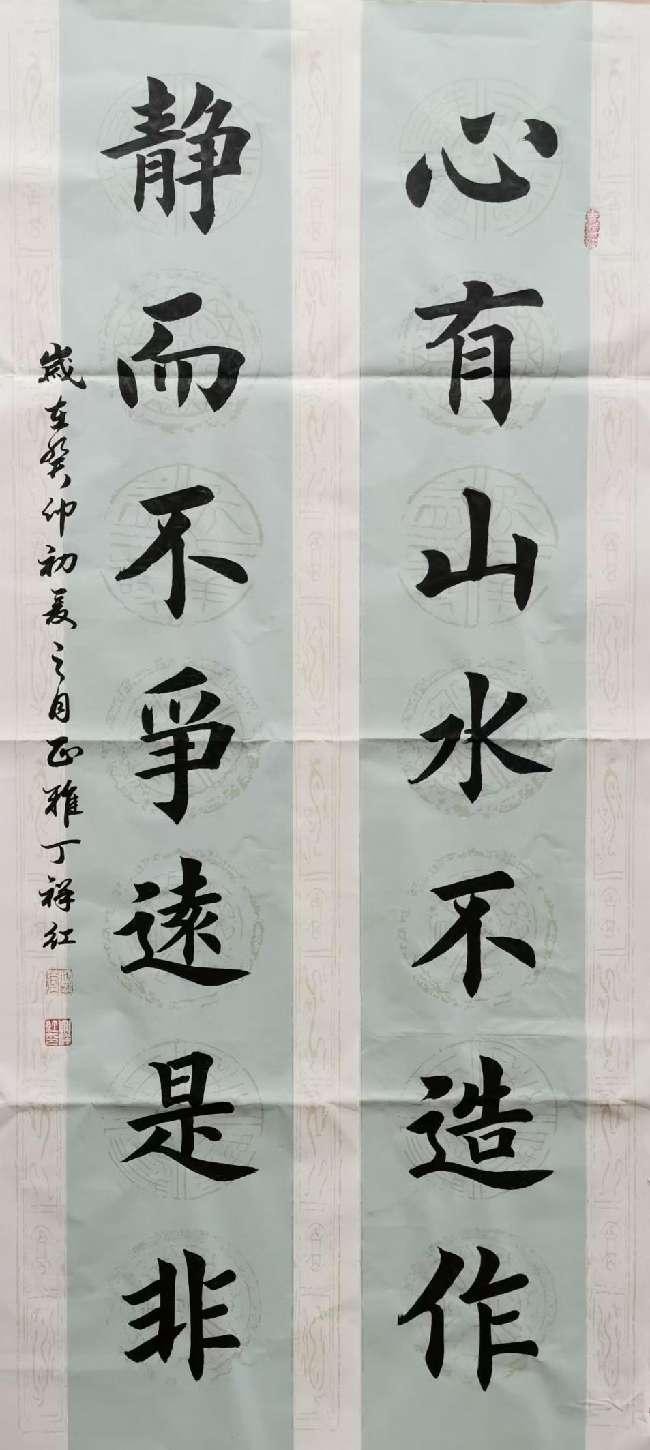 心有山水不造作
静而不爭遠是非
歲在癸卯初夏之月正雅丁祥红